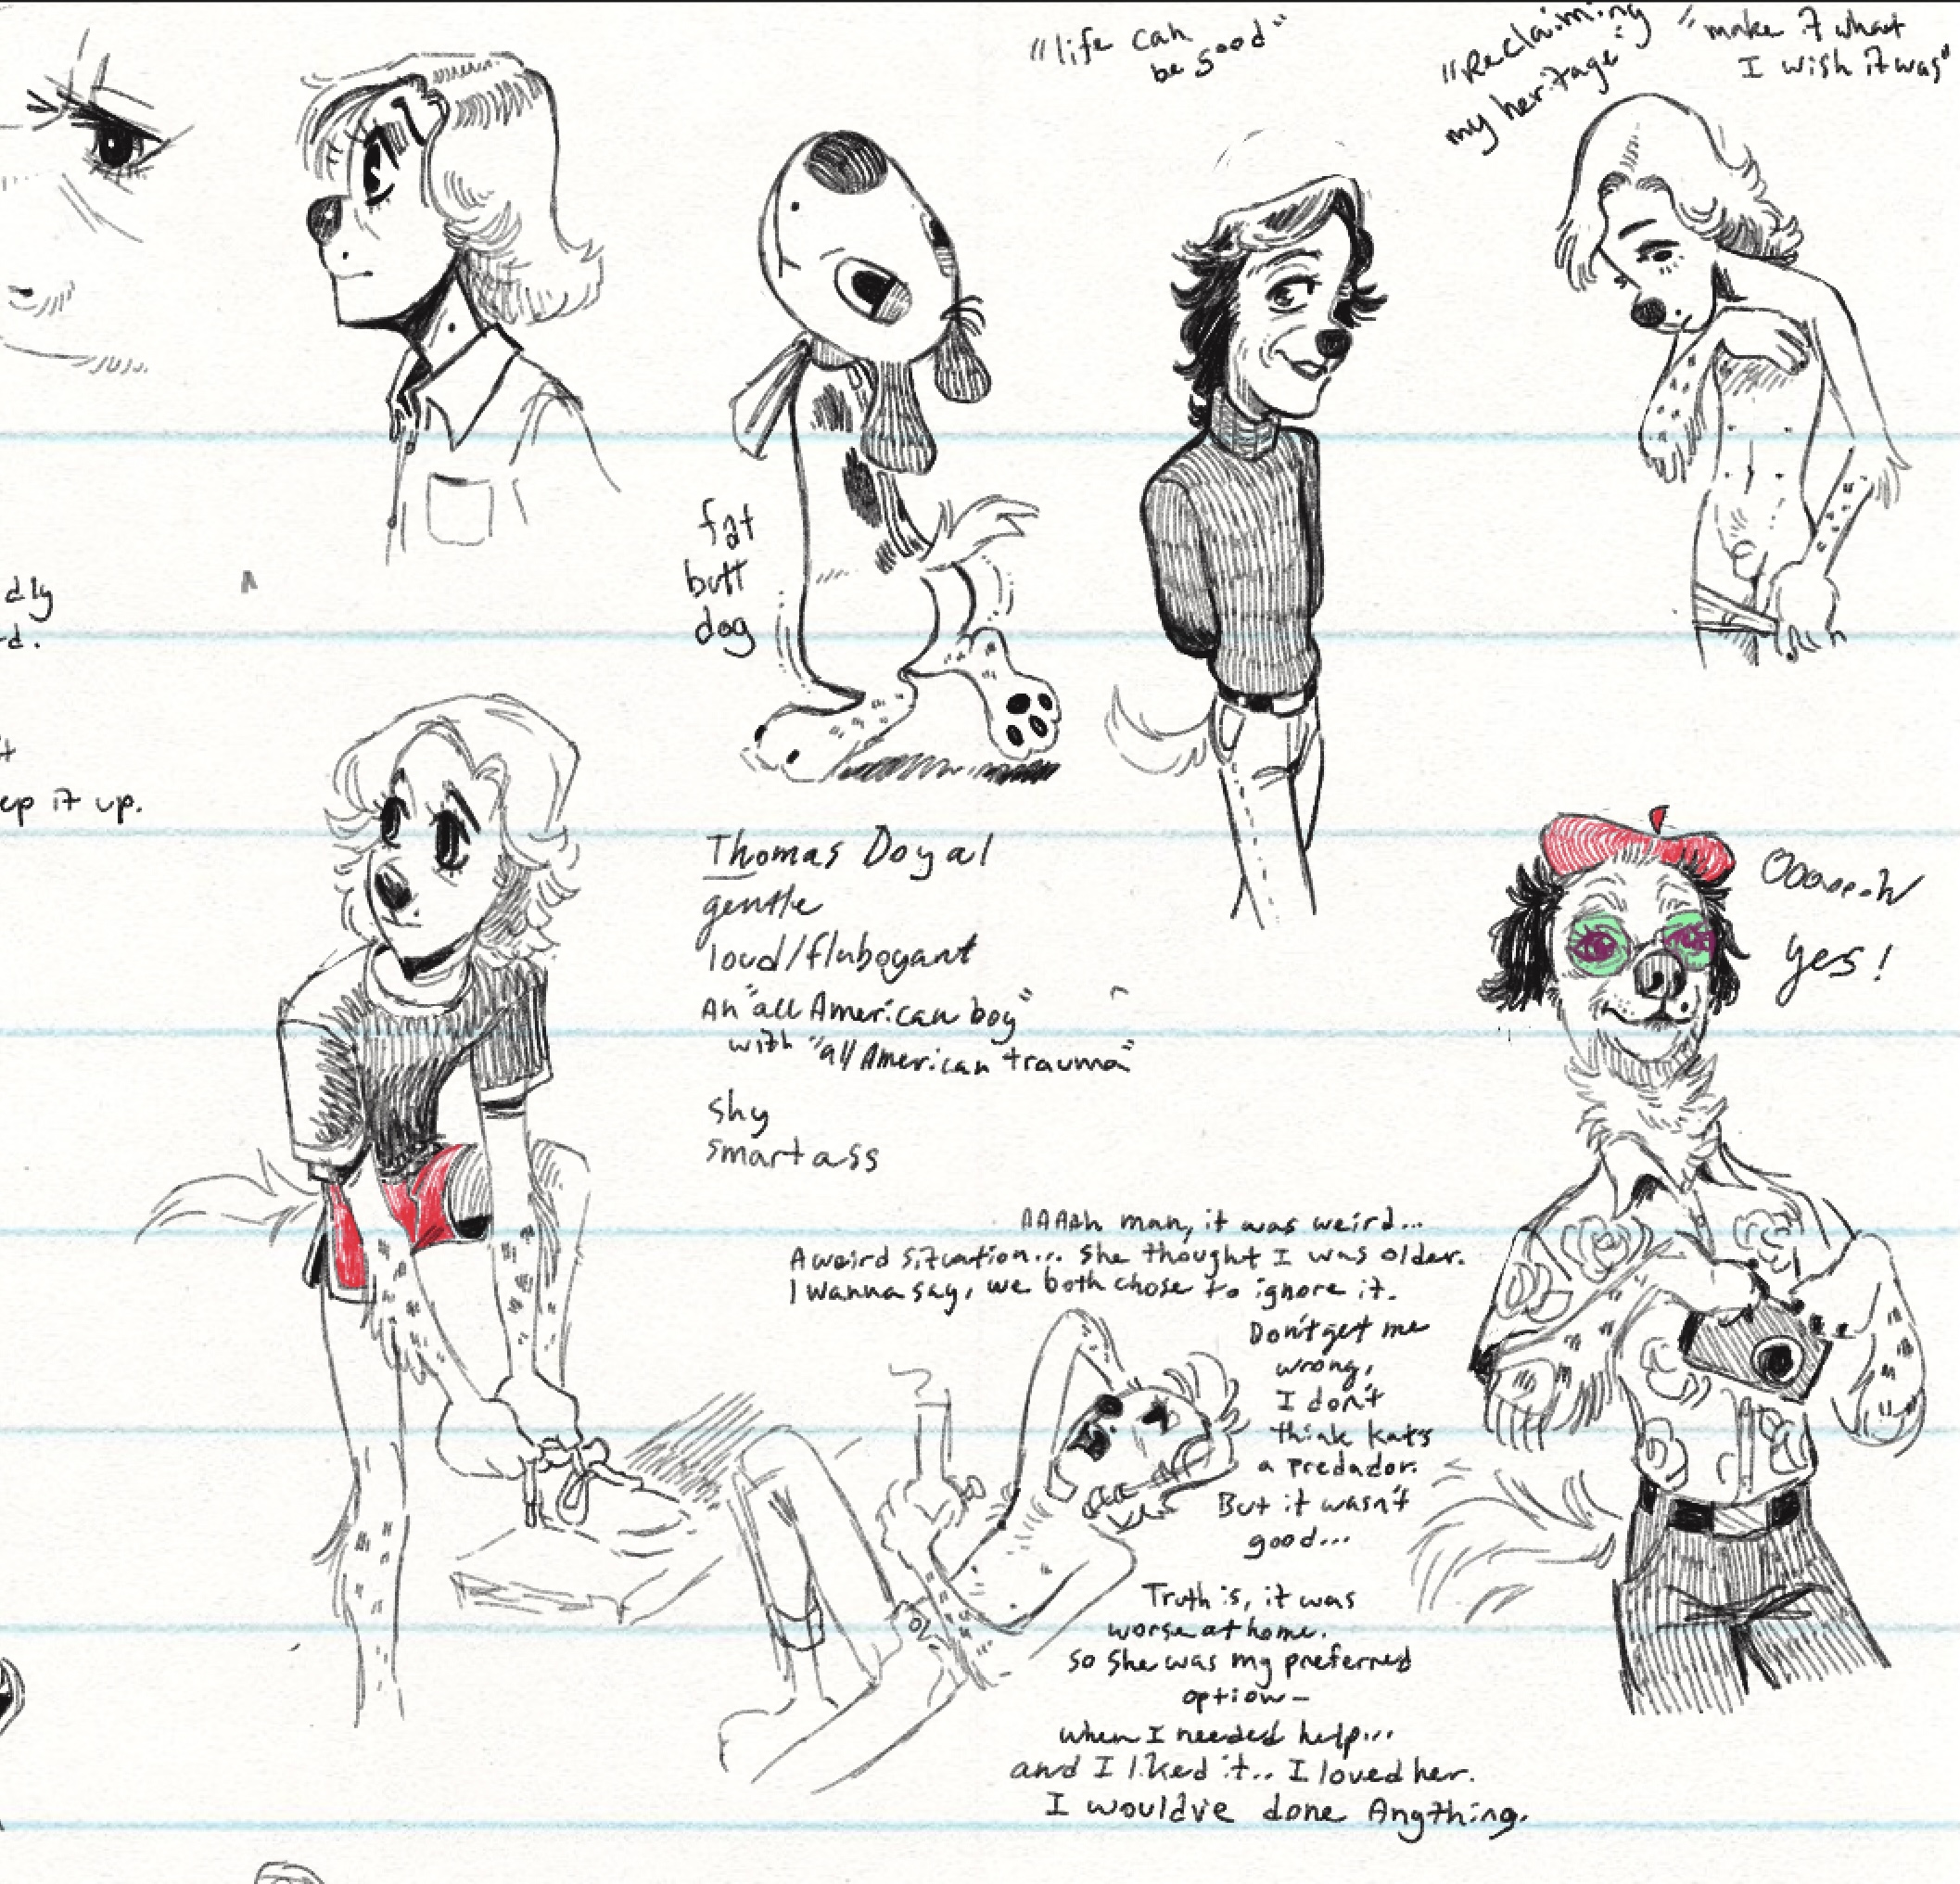 "life can
be good"
"Reclaiming
my heritage"
"make it what
I wish it was"
fat
butt
dog
dly
rd.
ep it up.
Thomas Doyal
gentle
loud/fluboyant
An "all American boy"
with "all American trauma"
shy
smartass
Ooooooh
yes!
AAAAh man, it was weird...
A weird situation... She thought I was older.
I wanna say, we both chose to ignore it.
Don't get me
wrong,
I don't
think kats
a predador.
But it wasn't
good...
Truth is, it was
worse at home.
So She was my preferred
option-
when I needed help...
and I liked it.. I loved her.
I would've done Anything.